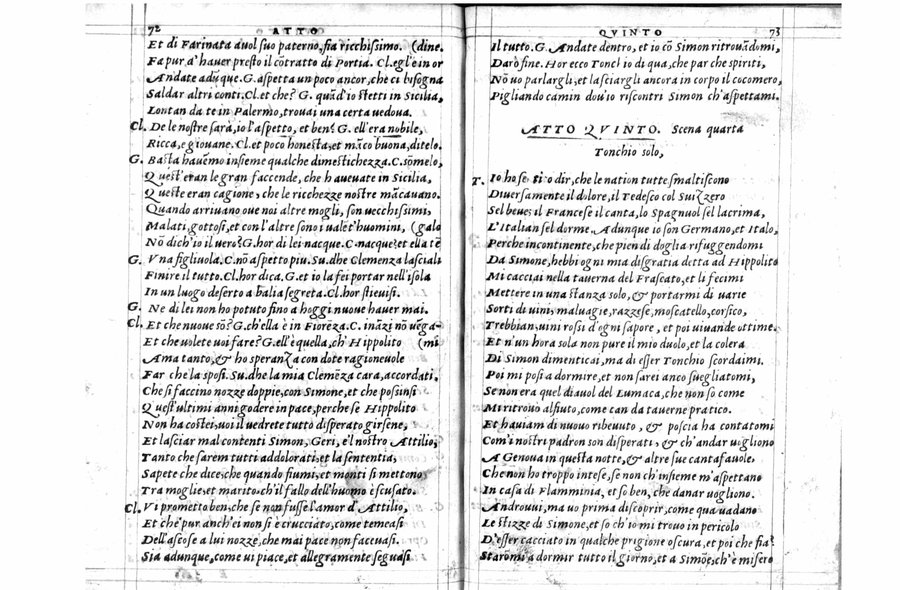 72 ATTO
Et di Farinata auol suo paterno, sia ricchissimo. (dine.
Fa pur d'hauer presto il cõtratto di Portia. Cl. egl'è in or
Andate adũque. G. aspetta un poco ancor, che ci bisogna
Saldar altri conti. Cl. et che? G. quãd'io stetti in Sicilia,
Lontan da te in Palermo, trouai una certa uedoua.
Cl. De le nostre sarà, io l'aspetto, et ben? G. ell'era nobile,
Ricca, e giouane. Cl. et poco honesta, et mãco buona, ditelo.
G. Basta hauẽmo insieme qualche dimestichezza. C. sõmelo,
Quest'eran le gran faccende, che haueuate in Sicilia,
Queste eran cagione, che le ricchezze nostre mãcauano.
Quando arriuano oue noi altre mogli, son uecchissimi,
Malati, gottosi, et con l'altre sono i ualẽt'huomini, (galo
Nõ dich'io il uero? G. hor di lei nacque. C. nacque? et ella tẽ
G. Vna figliuola. C. nõ aspetto piu. Su. dhe Clemenza lasciali
Finire il tutto. Cl. hor dica. G. et io la fei portar nell'isola
In un luogo deserto a balia segreta. Cl. hor stieuisi.
G. Ne di lei non ho potuto fino a hoggi nuoue hauer mai.
Cl. Et che nuoue sõ? G. ch'ella è in Fiorẽza. C. inãzi nõ uẽga-
Et che uolete uoi fare? G. ell'è quella, ch'Hippolito (mi
Ama tanto, & ho speranza con dote ragioneuole
Far che la sposi. Su. dhe la mia Clemẽza cara, accordati,
Che si faccino nozze doppie, con Simone, et che possinsi
Quest'ultimi anni godere in pace, perche se Hippolito
Non ha costei, uoi il uedrete tutto disperato girsene,
Et lasciar mal contenti Simon, Geri, e'l nostro Attilio,
Tanto che sarem tutti addolorati, et la sententia,
Sapete che dice, che quando fiumi, et monti si mettono
Tra moglie, et marito, ch'il fallo dell'huomo è scusato.
Cl. Vi prometto ben, che se non fusse l'amor d'Attilio,
Et che pur anch'ei non si è crucciato, come temeasi
Dell'ascose a lui nozze, che mai pace non faceuasi.
Sia adunque, come ui piace, et allegramente seguasi
QVINTO 73
Il tutto. G. Andate dentro, et io cõ Simon ritrouãdomi,
Darò fine. Hor ecco Toncl io di qua, che par che spiriti,
Nõ uo parlargli, et lasciargli ancora in corpo il cocomero,
Pigliando camin dou'io riscontri Simon ch'aspettami.
ATTO QVINTO. Scena quarta
Tonchio solo,
T. Io ho sẽtito dir, che le nation tutte smaltiscono
Diuersamente il dolore, il Tedesco col Suizzero
Sel beues il Francese il canta, lo Spagnuol sel lacrima,
L'Italian sel dorme. Adunque io son Germano, et Italo,
Perche incontinente, che pien di doglia rifuggendomi
Da Simone, hebbi ogni mia disgratia detta ad Hippolito
Mi cacciai nella tauerna del Frascato, et li fecimi
Mettere in una stanza solo, & portarmi di uarie
Sorti di uini, maluagie, razzese, moscatello, corsico,
Trebbian, uini rossi d'ogni sapore, et poi uiuande ottime.
Et n'un hora sola non pure il mio duolo, et la colera
Di Simon dimenticai, ma di esser Tonchio scordaimi.
Poi mi posi a dormire, et non sarei anco suegliatomi,
Se non era quel diauol del Lumaca, che non so come
Mi ritrouo alfiuto, come can da tauerne pratico.
Et hauiam di nuouo ribeuuto, & poscia ha contatomi
Com'i nostri padron son disperati, & ch'andar uogliono
A Genoua in questa notte, & altre sue cantafauole.
Che non ho troppo intese, se non ch'insieme m'aspettano
In casa di Flamminia, et so ben, che danar uogliono.
Androuui, ma uo prima discoprir, come qua uadano
Le stizze di Simone, et so ch'io mi trouo in pericolo
D'esser cacciato in qualche prigione oscura, et poi che fia?
Staromi a dormir tutto il giorno, et a Simõe, ch'è misero